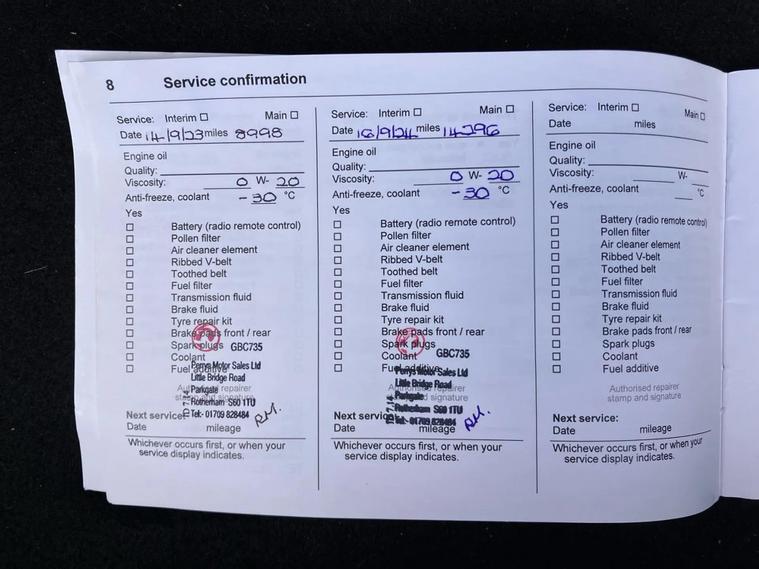 8 Service confirmation
Service: Interim ☐ Main ☐
Date 14/9/23 miles 8998
Engine oil
Quality:
Viscosity: 0 W- 20
Anti-freeze, coolant -30 °C
Yes
☐ Battery (radio remote control)
☐ Pollen filter
☐ Air cleaner element
☐ Ribbed V-belt
☐ Toothed belt
☐ Fuel filter
☐ Transmission fluid
☐ Brake fluid
☐ Tyre repair kit
☐ Brake pads front / rear
☐ Spark plugs GBC735
☐ Coolant
☐ Fuel additive
Perrys Motor Sales Ltd
Little Bridge Road
Parkgate
Rotherham S60 1TU
Tel:- 01709 828484
Authorised repairer
stamp and signature
R.M.
Next service:
Date
Whichever occurs first, or when your
service display indicates.
Service: Interim ☐ Main ☐
Date 16/9/24 miles 14296
Engine oil
Quality:
Viscosity: 0 W- 20
Anti-freeze, coolant -30 °C
Yes
☐ Battery (radio remote control)
☐ Pollen filter
☐ Air cleaner element
☐ Ribbed V-belt
☐ Toothed belt
☐ Fuel filter
☐ Transmission fluid
☐ Brake fluid
☐ Tyre repair kit
☐ Brake pads front / rear
☐ Spark plugs
☐ Coolant GBC735
☐ Fuel additive
Perrys Motor Sales Ltd
Little Bridge Road
Parkgate
Rotherham S60 1TU
Tel:- 01709 828484
Authorised repairer
stamp and signature
R.M.
Next service:
Date mileage
Whichever occurs first, or when your
service display indicates.
Service: Interim ☐ Main ☐
Date miles
Engine oil
Quality:
Viscosity: W-
Anti-freeze, coolant °C
Yes
☐ Battery (radio remote control)
☐ Pollen filter
☐ Air cleaner element
☐ Ribbed V-belt
☐ Toothed belt
☐ Fuel filter
☐ Transmission fluid
☐ Brake fluid
☐ Tyre repair kit
☐ Brake pads front / rear
☐ Spark plugs
☐ Coolant
☐ Fuel additive
Authorised repairer
stamp and signature
Next service:
Date mileage
Whichever occurs first, or when your
service display indicates.